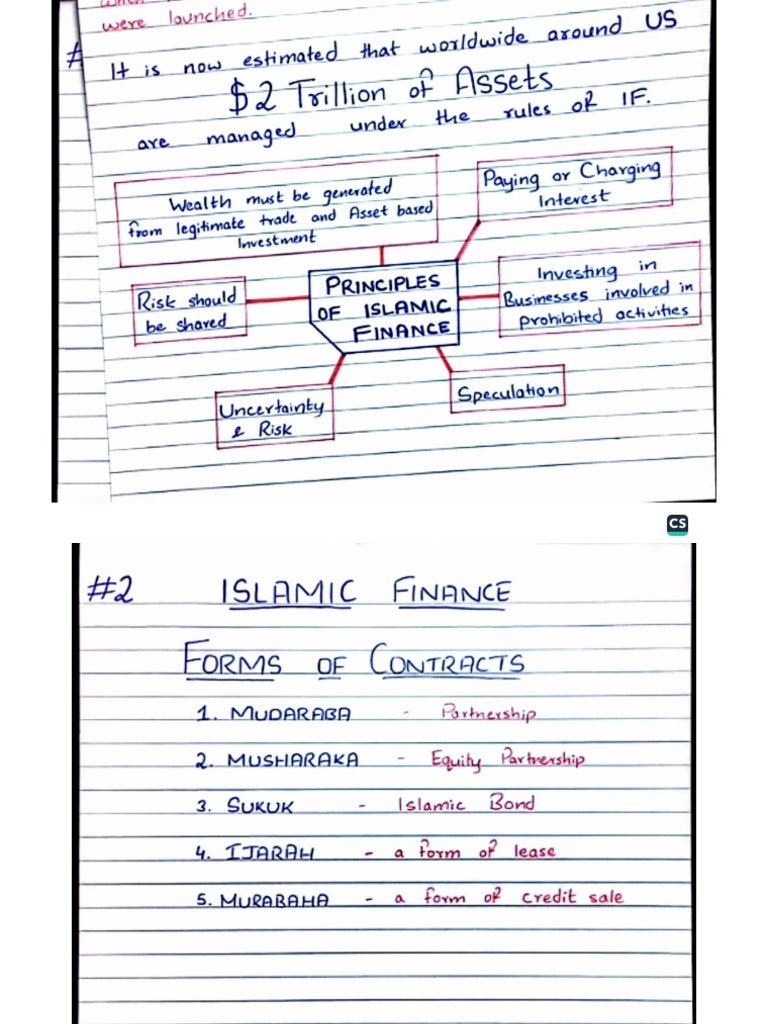 were launched.
#
It is now estimated that worldwide around US
$2 Trillion of Assets
are managed under the rules of IF.
Wealth must be generated
from legitimate trade and Asset based
Investment
Paying or Charging
Interest
Risk should
be shared
PRINCIPLES
OF ISLAMIC
FINANCE
Investing in
Businesses involved in
prohibited activities
Uncertainty
& Risk
Speculation
CS
#2 ISLAMIC FINANCE
FORMS OF CONTRACTS
1. MUDARABA - Partnership
2. MUSHARAKA - Equity Partnership
3. SUKUK - Islamic Bond
4. IJARAH - a form of lease
5. MURABAHA - a form of credit sale